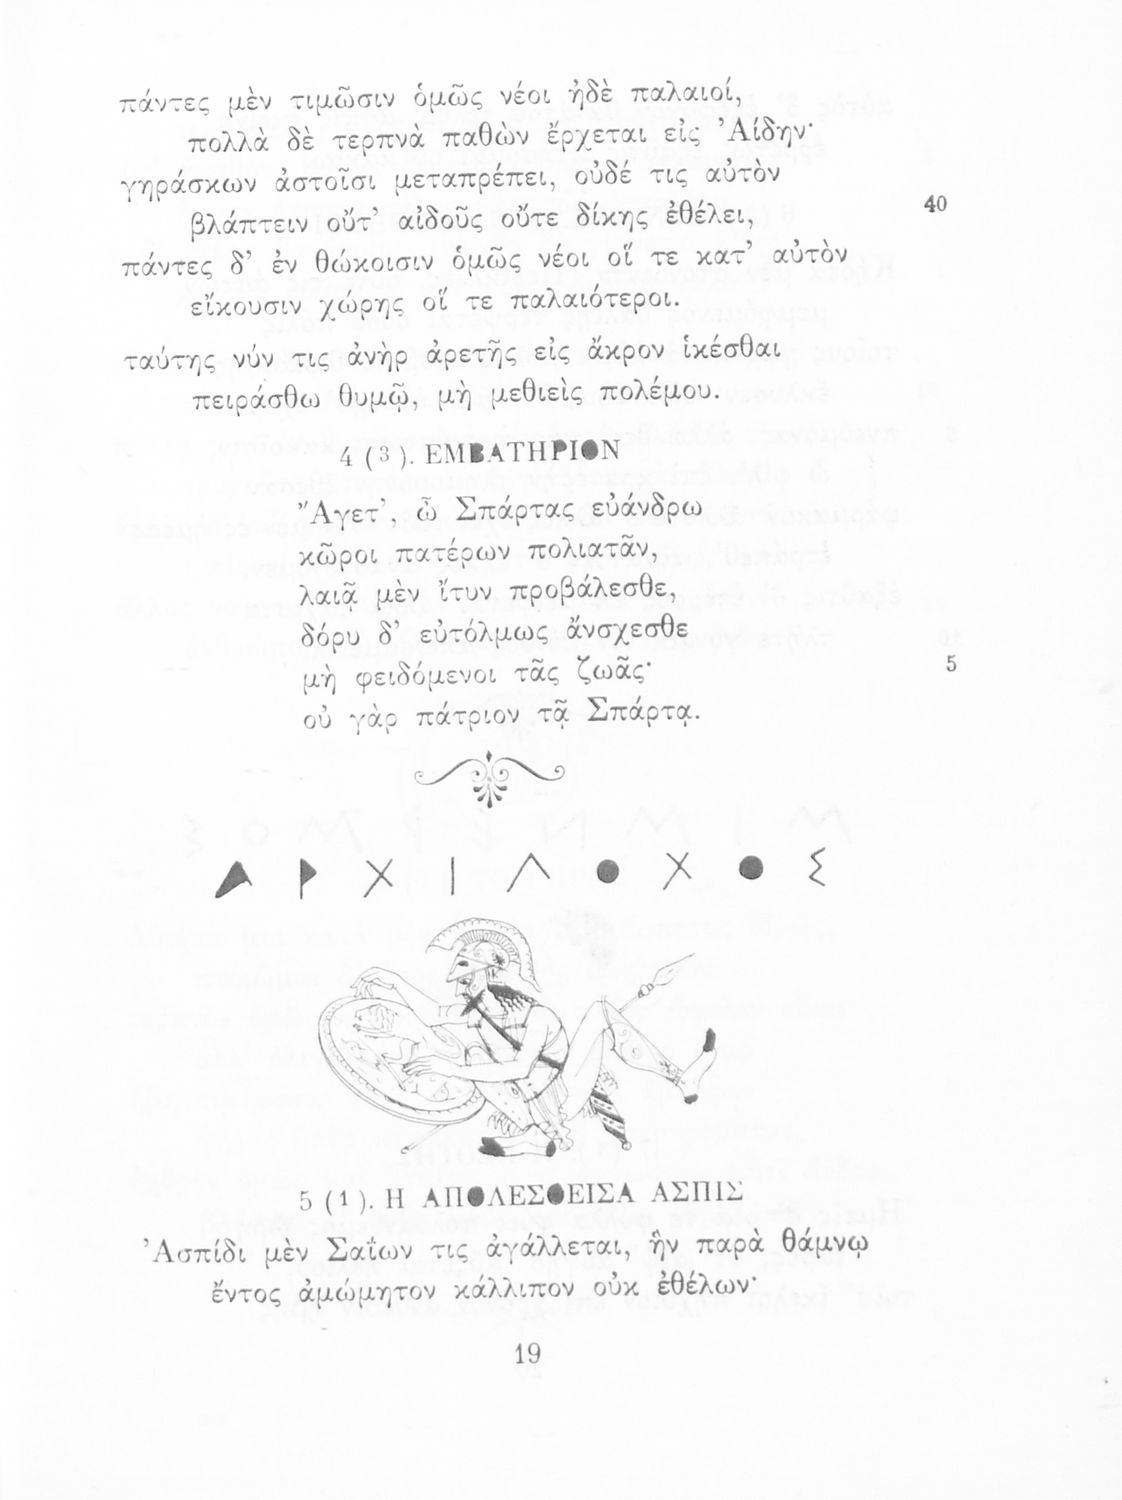 πάντες μὲν τιμῶσιν ὁμῶς νέοι ἠδὲ παλαιοί,
πολλὰ δὲ τερπνὰ παθὼν ἔρχεται εἰς Ἀΐδην·
γηράσκων ἀστοῖσι μεταπρέπει, οὐδέ τις αὐτὸν
βλάπτειν οὔτ’ αἰδοῦς οὔτε δίκης ἐθέλει, 40
πάντες δ’ ἐν θώκοισιν ὁμῶς νέοι οἵ τε κατ’ αὐτὸν
εἴκουσιν χώρης οἵ τε παλαιότεροι.
ταύτης νύν τις ἀνὴρ ἀρετῆς εἰς ἄκρον ἱκέσθαι
πειράσθω θυμῷ, μὴ μεθιεὶς πολέμου.
4 (3). ΕΜΒΑΤΗΡΙΟΝ
Ἄγετ’, ὦ Σπάρτας εὐάνδρω
κῶροι πατέρων πολιατᾶν,
λαιᾷ μὲν ἴτυν προβάλεσθε,
δόρυ δ’ εὐτόλμως ἄνσχεσθε
μὴ φειδόμενοι τᾶς ζωᾶς· 5
οὐ γὰρ πάτριον τᾷ Σπάρτᾳ.
ΑΡΧΙΛΟΧΟΣ
5 (1). Η ΑΠΟΛΕΣΘΕΙΣΑ ΑΣΠΙΣ
Ἀσπίδι μὲν Σαΐων τις ἀγάλλεται, ἣν παρὰ θάμνῳ
ἔντος ἀμώμητον κάλλιπον οὐκ ἐθέλων·
19